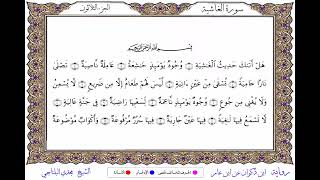 سورة الغاشية الجزء الثلاثون
بِسْمِ ٱللَّهِ ٱلرَّحْمَٰنِ ٱلرَّحِيمِ
هَلْ أَتَىٰكَ حَدِيثُ ٱلْغَٰشِيَةِ ۝ وُجُوهٌ يَوْمَئِذٍ خَٰشِعَةٌ ۝ عَامِلَةٌ نَّاصِبَةٌ ۝ تَصْلَىٰ
نَارًا حَامِيَةً ۝ تُسْقَىٰ مِنْ عَيْنٍ ءَانِيَةٍ ۝ لَّيْسَ لَهُمْ طَعَامٌ إِلَّا مِن ضَرِيعٍ ۝ لَّا يُسْمِنُ
وَلَا يُغْنِي مِن جُوعٍ ۝ وُجُوهٌ يَوْمَئِذٍ نَّاعِمَةٌ ۝ لِّسَعْيِهَا رَاضِيَةٌ ۝ فِي جَنَّةٍ عَالِيَةٍ ۝
لَّا تَسْمَعُ فِيهَا لَٰغِيَةً ۝ فِيهَا عَيْنٌ جَارِيَةٌ ۝ فِيهَا سُرُرٌ مَّرْفُوعَةٌ ۝ وَأَكْوَابٌ مَّوْضُوعَةٌ ۝
رواية ابن ذكوان عن ابن عامر الشيخ مجدي